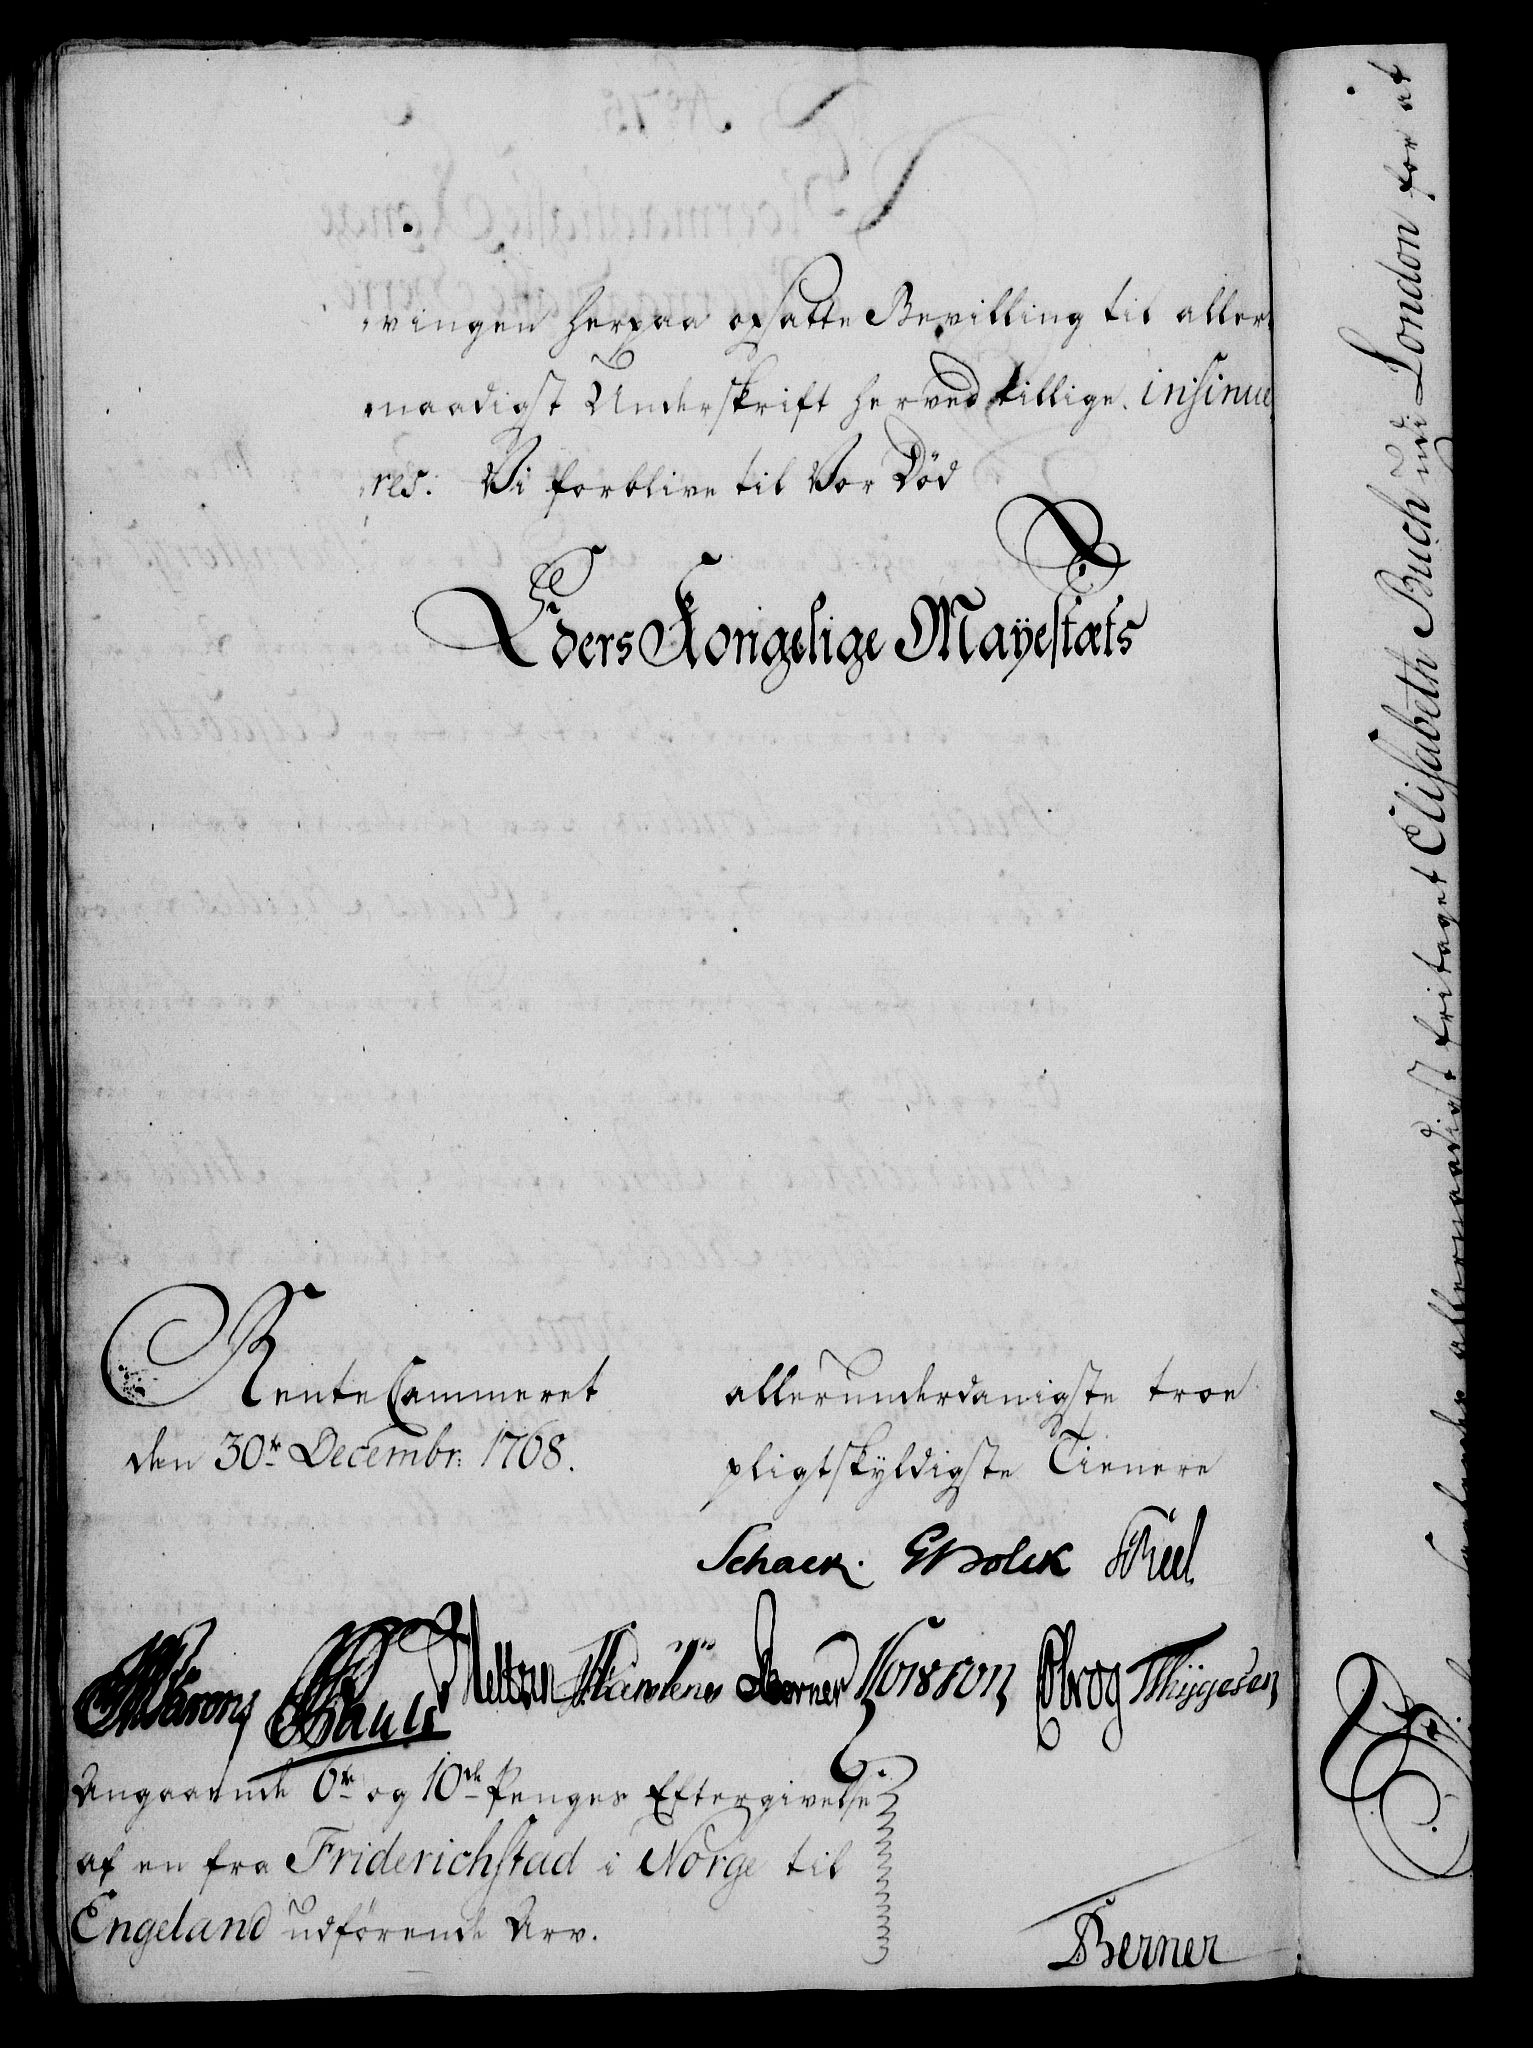 ringen herpaa opsatte Bevilling til aller
naadigst Underskrift herved tillige insinue
res. Vi forblive til Vor Død
Eders Kongelige Mayestæts
Rente Cammeret
den 30te Decembr: 1768.
allerunderdanigste troe
pligtskyldigste Tienere
Schack. GHolck
Berner Thygesen
Angaaende 6te og 10de Penges Eftergivelse
af en fra Friderichstad i Norge til
Engeland udførende Arv.
Berner
allernaadigst fritaget Elisabeth Buch udi London for at